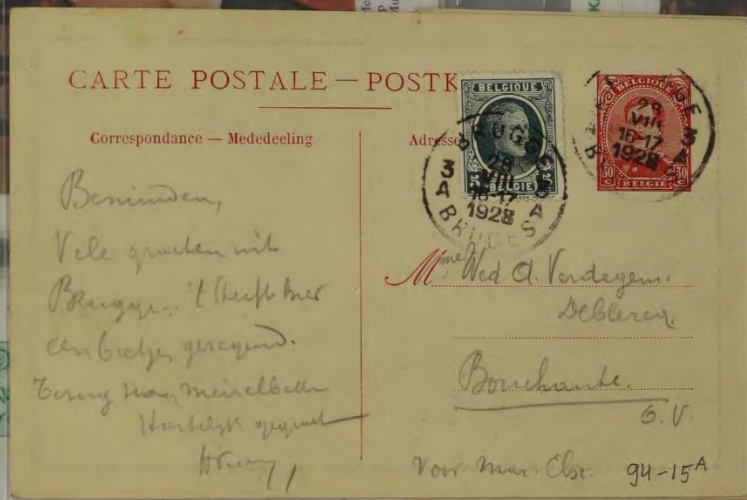 CARTE POSTALE — POSTK
Correspondance — Mededeeling
Adresse
BELGIQUE
5 5
BELGIË
BRUGGE
3 A 3 A
28
VIII
16-17
1928
BRUGES
BELGIQUE
30 C 30 C
BELGIË
28
VIII
16-17
1928
3 A
Beminden,
Vele groeten uit
Brugge. 't heeft hier
een beetje geregend.
Terug naar Meirelbeke
Hartelijk gegroet
Mme Wed A. Verdegem.
DeClercq.
Bouchaute.
O. V.
Voor 94-15A